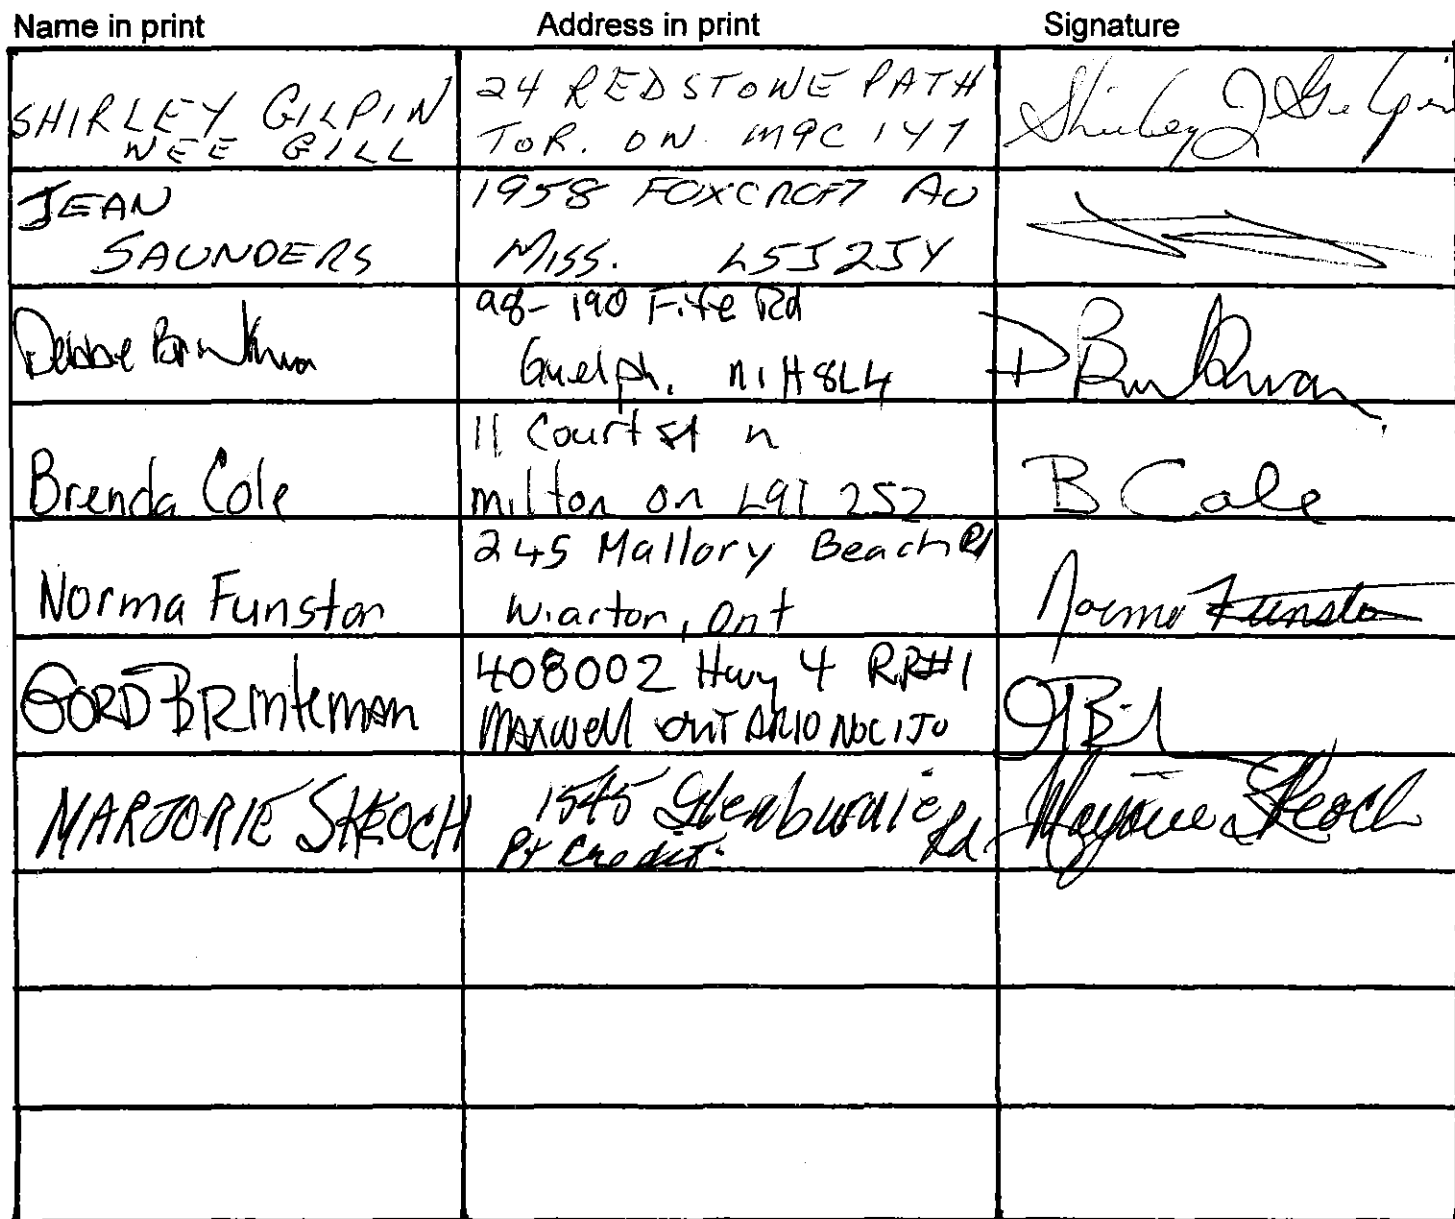 Name in print Address in print Signature
SHIRLEY GILPIN
NEE GILL
24 REDSTONE PATH
TOR. ON. M9C 1Y7
Shirley J Gilpin
JEAN
SAUNDERS
1958 FOXCROFT AV
MISS. L5J2JY
Debbie
190 Fife Rd
Guelph, N1H8L4
Brenda Cole
11 Court st n
milton on L9T 2S2
B Cole
Norma Funston
245 Mallory Beach Rd
Wiarton, Ont
Norma Funston
GORD BRINKMAN
408002 Hwy 4 RR#1
MAXWELL ONTARIO N0C1J0
MARJORIE SKEOCH
1545 Glenburnie Rd
Pt Credit.
Marjorie Skeoch